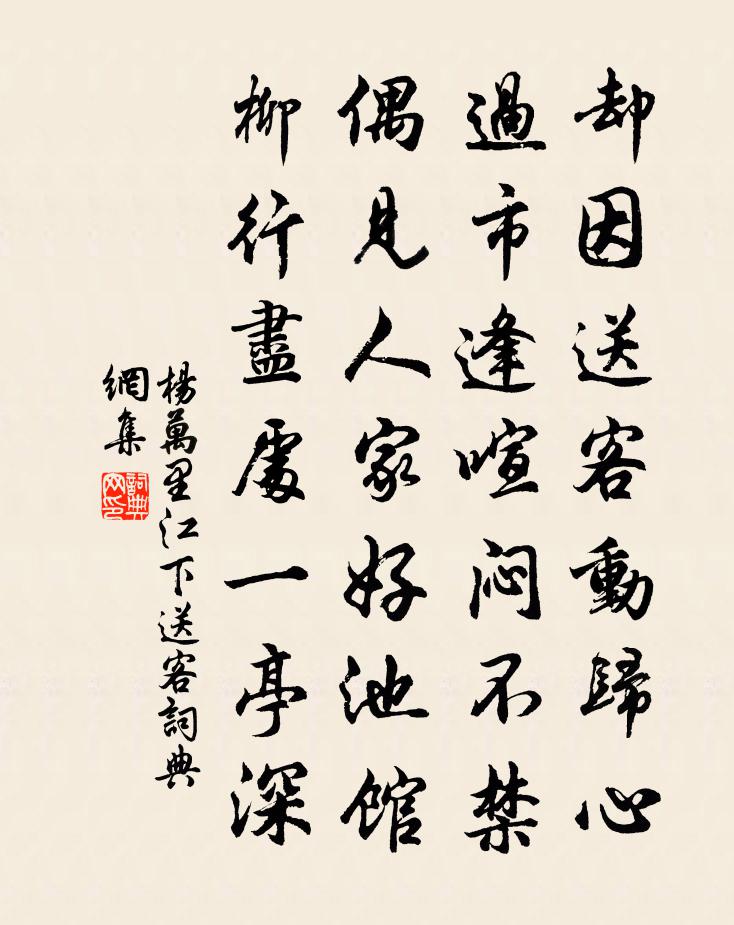 却因送客動歸心
過市逢喧闷不禁
偶見人家好池馆
柳行盡處一亭深
楊萬里江下送客詞典
網集
詞典
网印